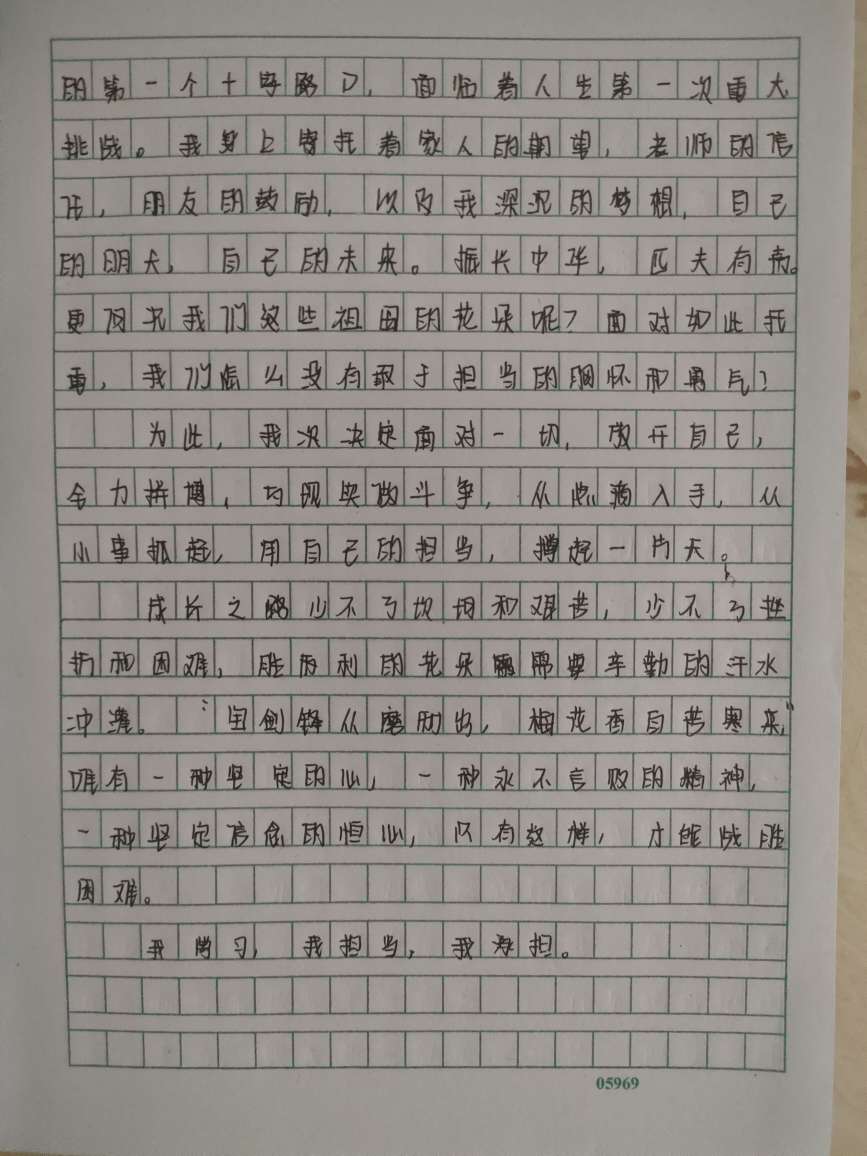 的第一个十字路口，面临着人生第一次重大
挑战。我身上寄托着家人的期望，老师的信
任，朋友的鼓励，以及我深沉的梦想，自己
的明天，自己的未来。振长中华，匹夫有责。
更何况我们这些祖国的花朵呢？面对如此重
重，我们怎么没有敢于担当的胸怀和勇气？
为此，我次决定面对一切，放开自己，
全力拼搏，与现实做斗争，从点滴入手，从
小事抓起，用自己的担当，撑起一片天。
成长之路少不了坎坷和艰苦，少不了挫
折和困难，胜利的花朵需要辛勤的汗水
冲灌。“宝剑锋从磨励出，梅花香自苦寒来，”
唯有一种坚定的心，一种永不言败的精神，
一种坚定信念的恒心，只有这样，才能战胜
困难。
我学习，我担当，我承担。
05969